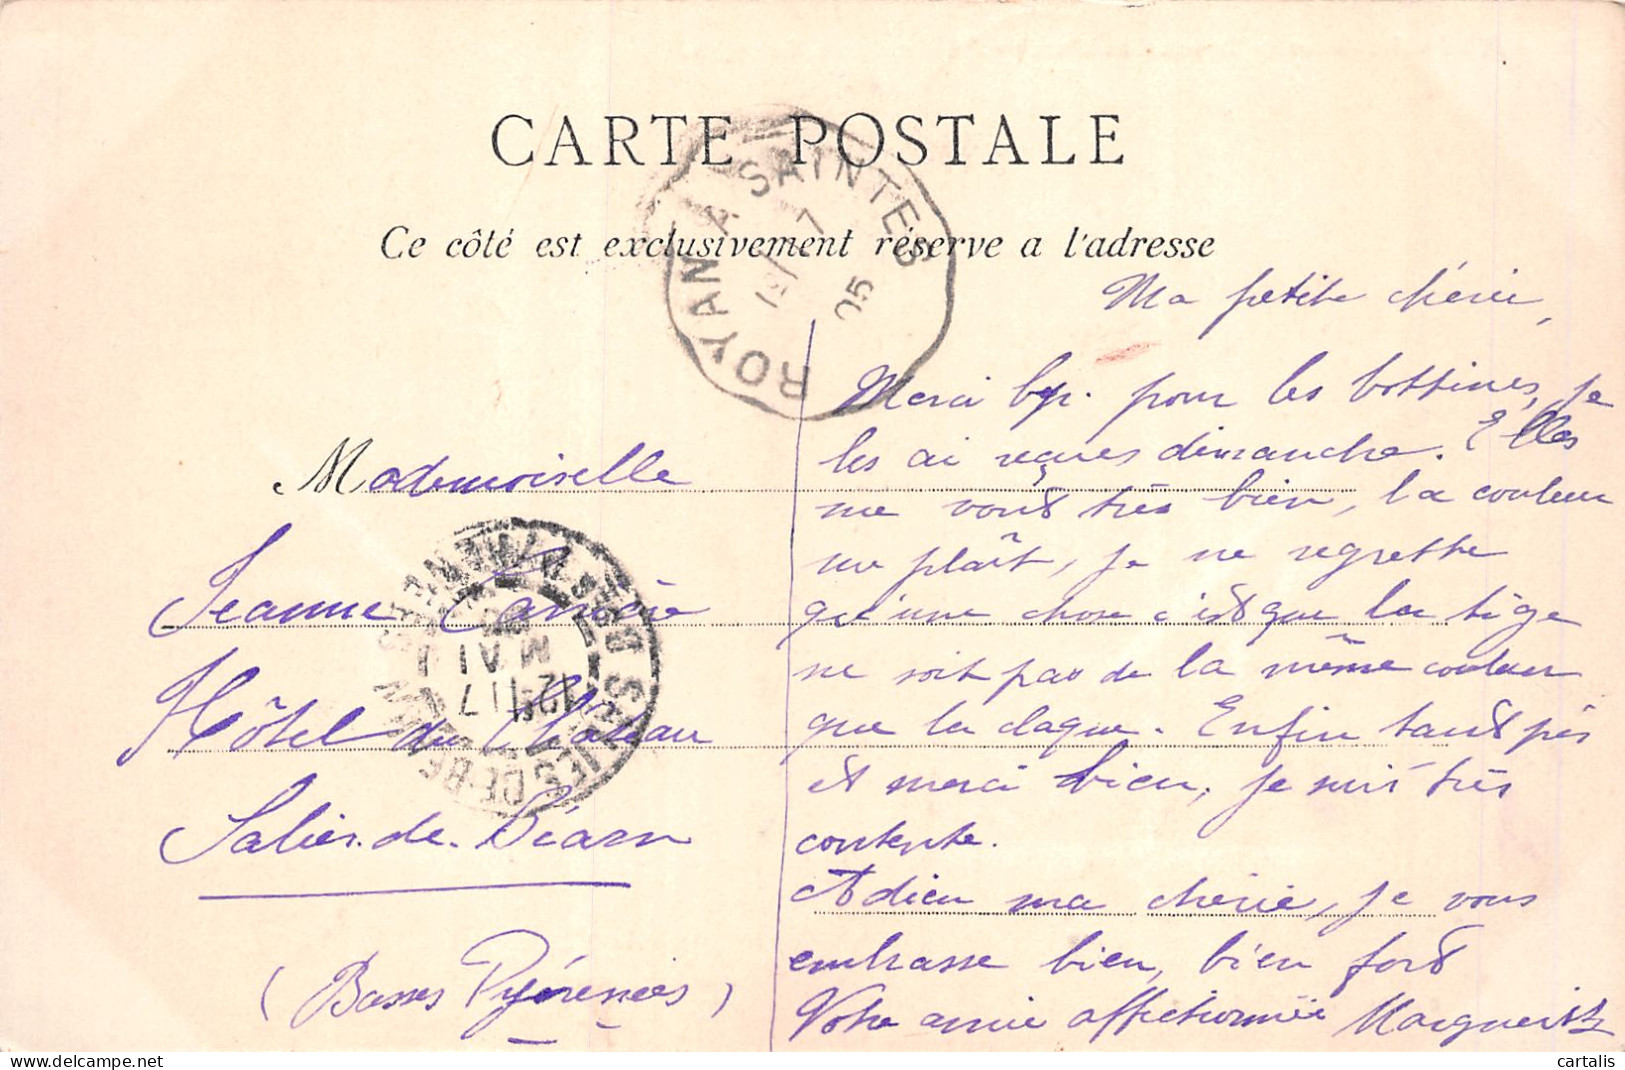 CARTE POSTALE
Ce côté est exclusivement réservé a l'adresse
ROYAN A SAINTES
7
05
Ma petite chérie,
Merci bp. pour les bottines, je
les ai reçues dimanche. Elles
me vont très bien, la couleur
me plaît, je ne regrette
qu'une chose c'est que la tige
ne soit pas de la même couleur
que la claque. Enfin tant pis
et merci bien, je suis très
contente.
Adieu ma chérie, je vous
embrasse bien, bien fort
Votre amie affectionnée Marguerite
Mademoiselle
Jeanne
Hôtel du Château
Salies-de-Béarn
(Basses Pyrénées)
SALIES-DE-BÉARN
12 17
MAI
cartalis
delcampe.net